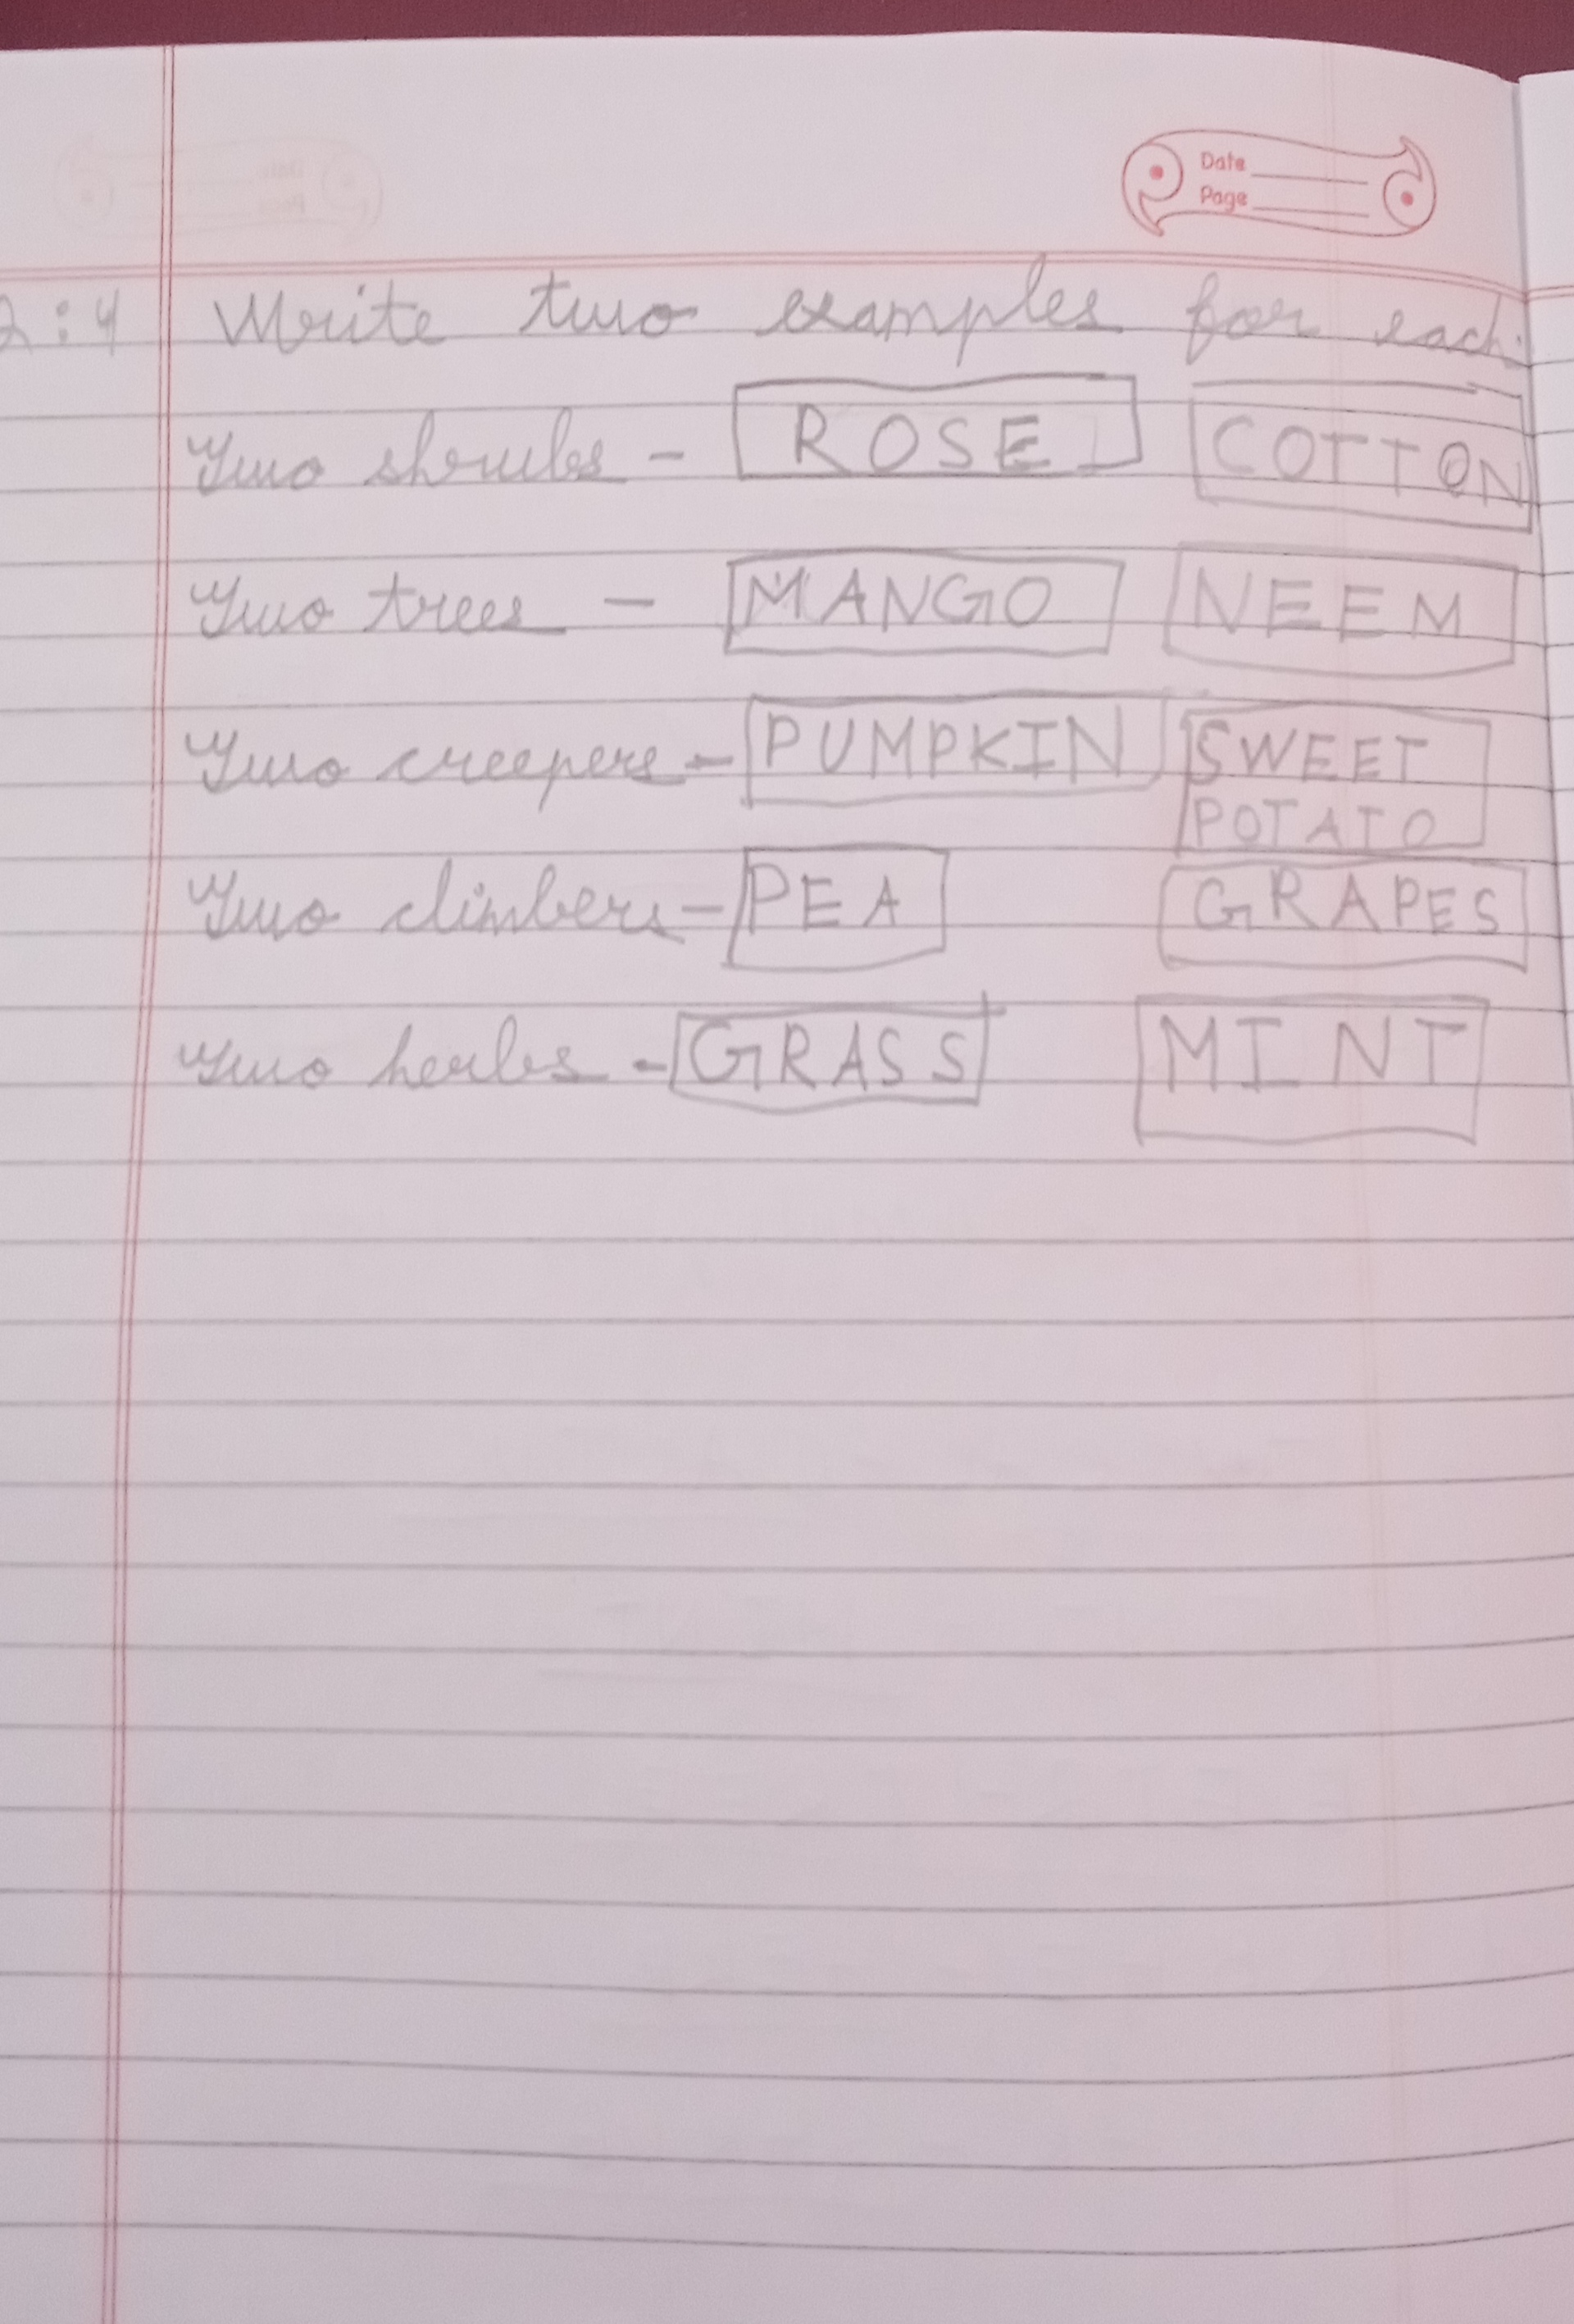 Date
Page
2:4 Write two examples for each.
Two shrubs - ROSE COTTON
Two trees - MANGO NEEM
Two creepers - PUMPKIN SWEET
POTATO
Two climbers - PEA GRAPES
Two herbs - GRASS MINT